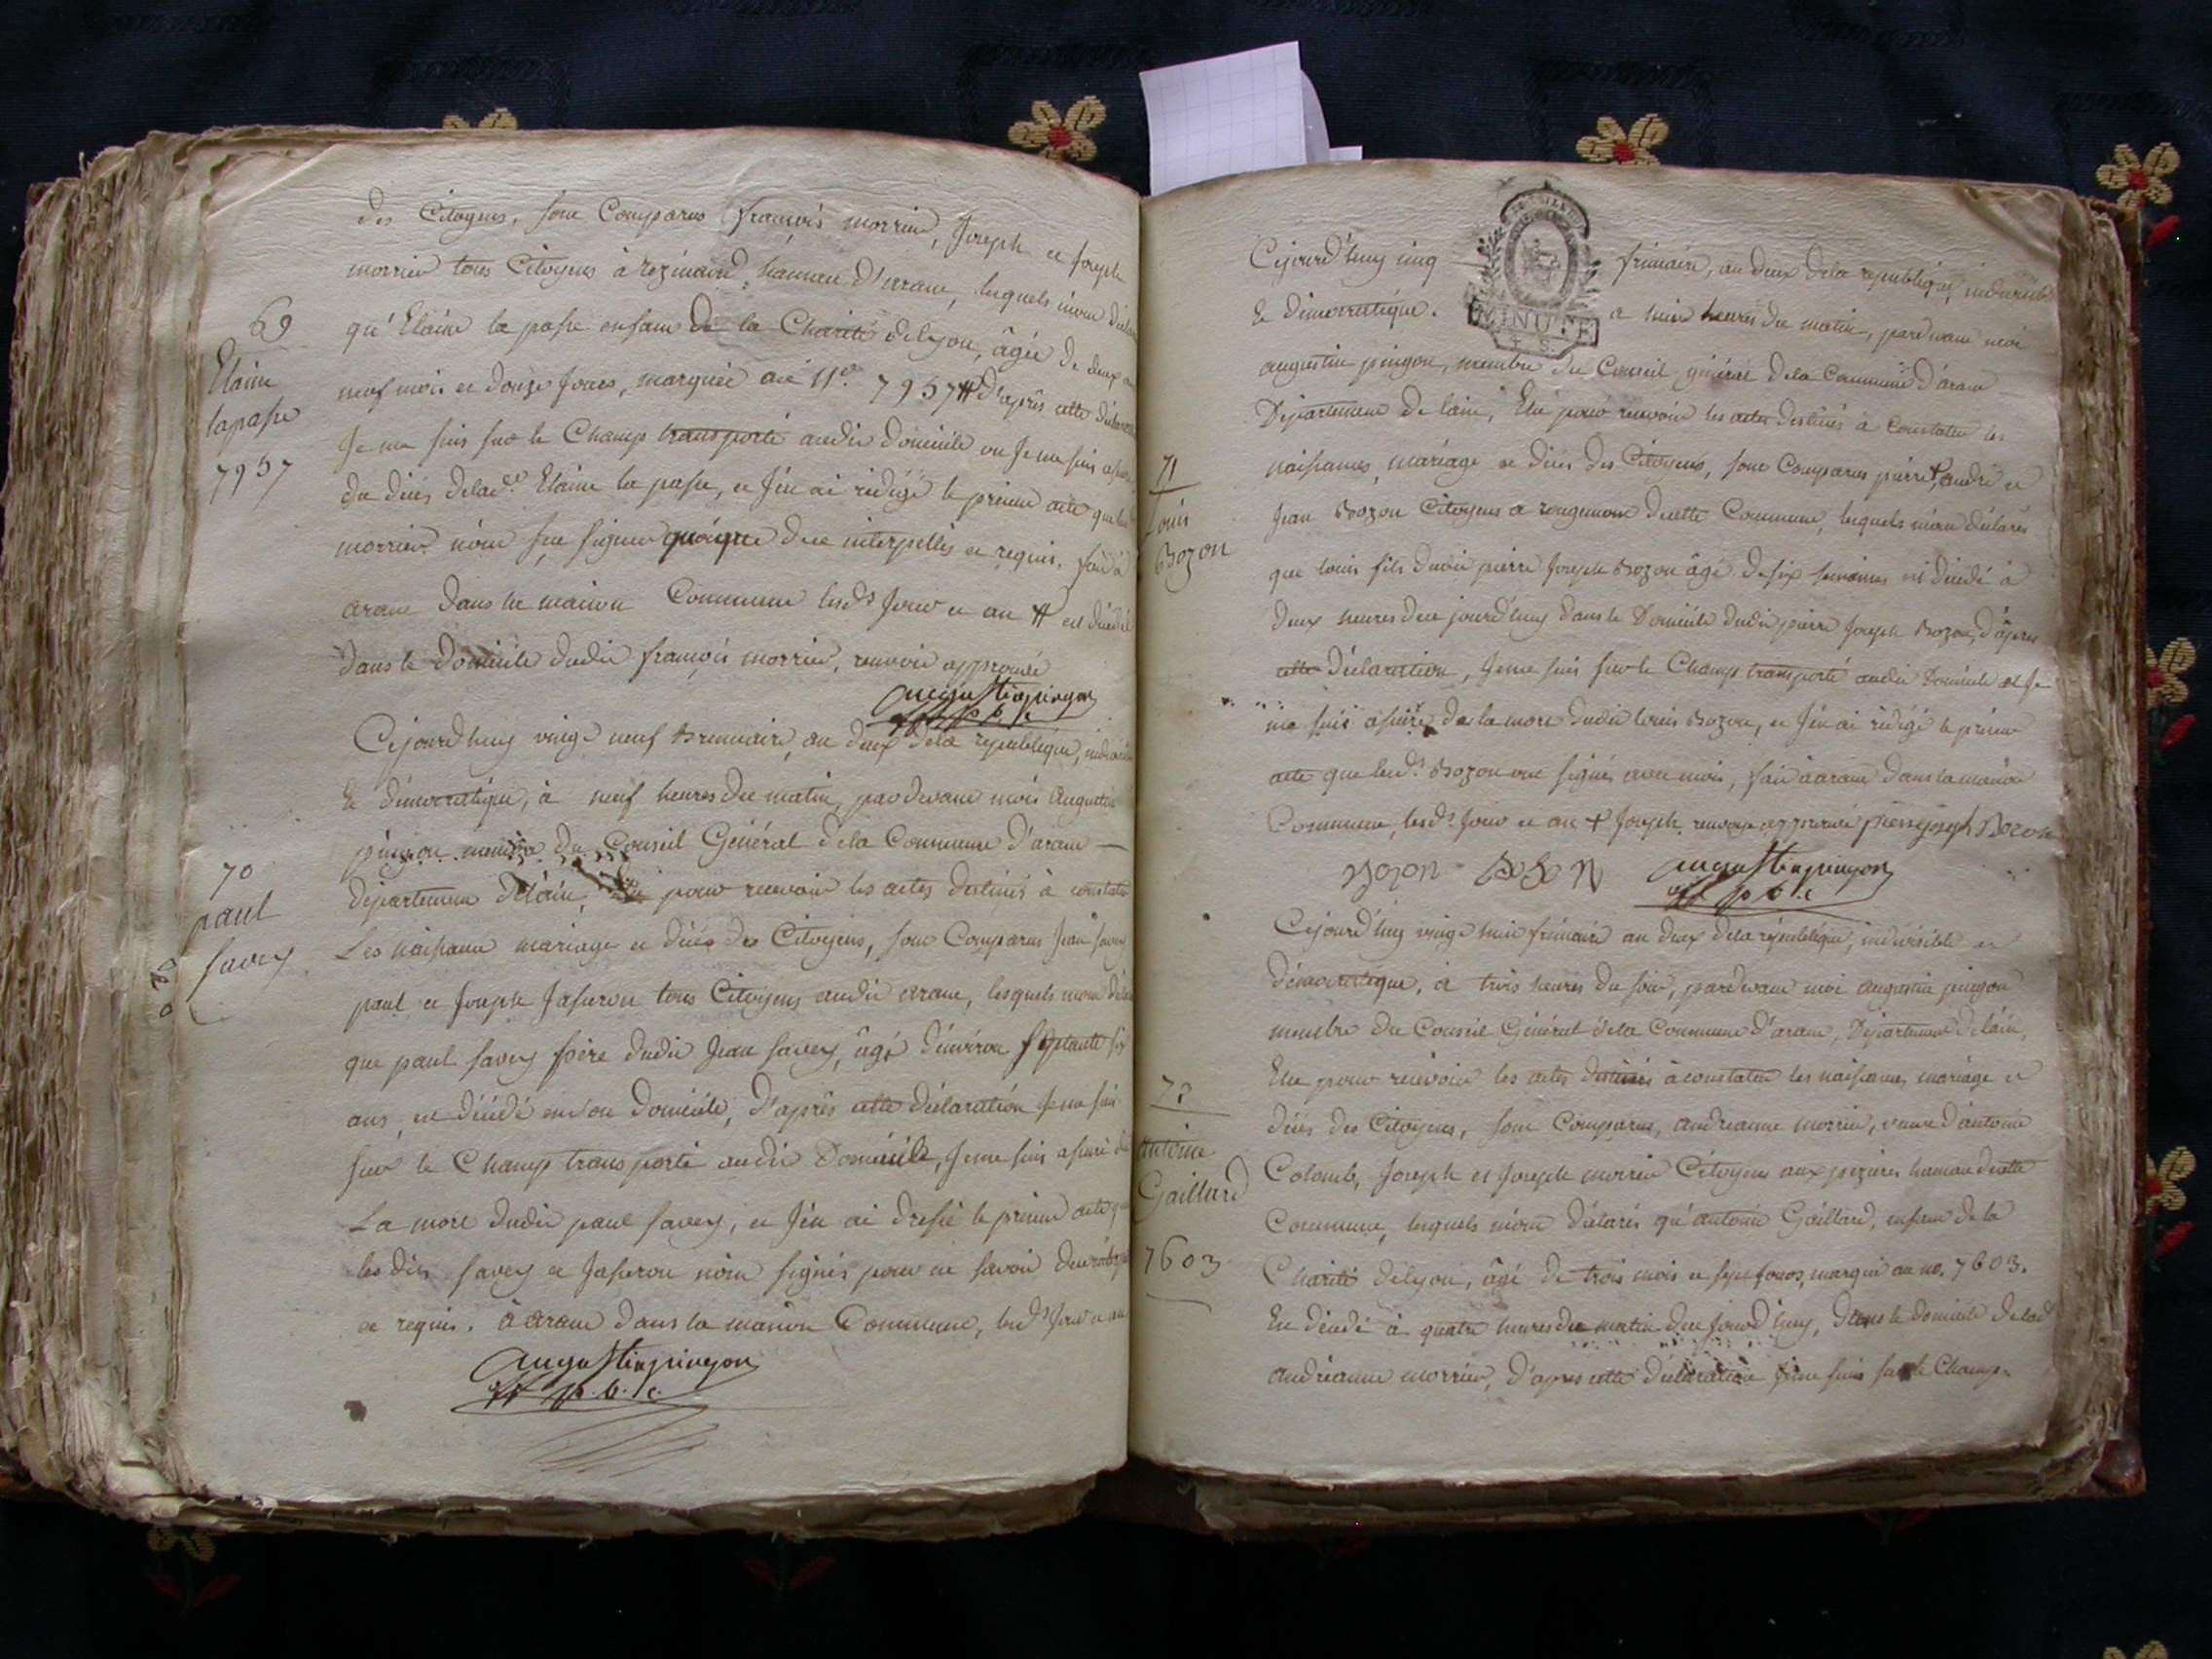 des Citoyens, sont Comparus françois morrier, Joseph et Joseph
morrier tous Citoyens à rezinand, hameau d'arane, lesquels m'ont
69
Elaine
lapasse
7957
qu'Elaine la passe enfant de la Charité de lyon, âgée de deux
neuf mois et douze Jours, marquée au N.o 7957 # d'après cette
Je me suis sur le Champ transporté audit domicile ou Je me suis
du décès de lad.e Elaine la passe, et J'en ai rédigé le présent acte que
morrier n'ont sçu signer quoique de ce interpellés et requis. fait à
arane dans la maison Commune lesd.s Jour et an # est décédée
dans le domicile dudit françois morrier, renvoi approuvé
augustinpingon
off p. b. c.
Cejourd'huy vingt neuf Brumaire, an deux de la république,
& démocratique, à neuf heures du matin, par devant mois Augustin
pingon membre du Conseil Général de la Commune d'arane —
70
paul
savey
département de lain, élu pour recevoir les actes destinés à constater
Les naissance mariage et décès des Citoyens, sont Comparus Jean savey
paul et Joseph Jasseron tous Citoyens audit arane, lesquels m'ont
que paul savey frère dudit Jean savey, âgé d'environ septante six
ans, est décédé en son domicile, d'après cette déclaration Je me suis
sur le Champ transporté audit Domicile, Je me suis assuré de
La mort dudit paul savey, et J'en ai dressé le présent acte que
lesdits savey et Jasseron n'ont signés pour ne savoir de ce
et requis. à arane dans la maison Commune, lesd.s Jour et an
augustinpingon
off p. b. c.
Cejourd'huy cinq frimaire, an deux de la république, indivisible
& démocratique. a huit heures du matin, pardevant moi
MINUTE
augustin pingon, membre du Conseil général de la Commune d'arane
Département de lain, Elu pour recevoir les actes destinés à Constater les
71
Louis
Bozon
naissances, mariage et décès des Citoyens, sont Comparus pierre +, andré et
Jean Bozon Citoyens a rougemont de cette Commune, lesquels m'ont déclarés
que louis fils dudit pierre Joseph Bozon âgé de six semaines est décédé à
deux heures de ce jourd'huy dans le Domicile dudit pierre Joseph Bozon, d'après
cette déclaration, Je me suis sur le Champ transporté audit Domicile et Je
me suis assuré de la mort dudit louis Bozon, et J'en ai rédigé le présent
acte que lesd.s Bozon ont signés avec mois, fait à arane dans la maison
Commune, lesd.s Jour et an + Joseph renvoye approuvé pierrejoseph Bozon
Bozon Bozon augustinpingon
off p. b. c.
Cejourd'huy vingt huit frimaire an deux de la république, indivisible et
démocratique, à trois heures du soir, pardevant moi augustin pingon
membre du Conseil Général de la Commune d'arane, Département de lain,
Elu pour recevoir les actes destinés à constater les naissances mariage et
72
antoine
Gaillard
7603
décès des Citoyens, sont Comparus, andréanne morrier, veuve d'antoine
Colomb, Joseph et Joseph morrier Citoyens aux pézières hameau de cette
Commune, lesquels m'ont déclarés qu'antoine Gaillard, enfant de la
Charité de lyon, âgé de trois mois et sept Jours, marqué au no. 7603.
Est décédé à quatre heures du matin de ce Jourd'huy, dans le domicile de lad
andréanne morrier, d'après cette déclaration Je me suis sur le Champ